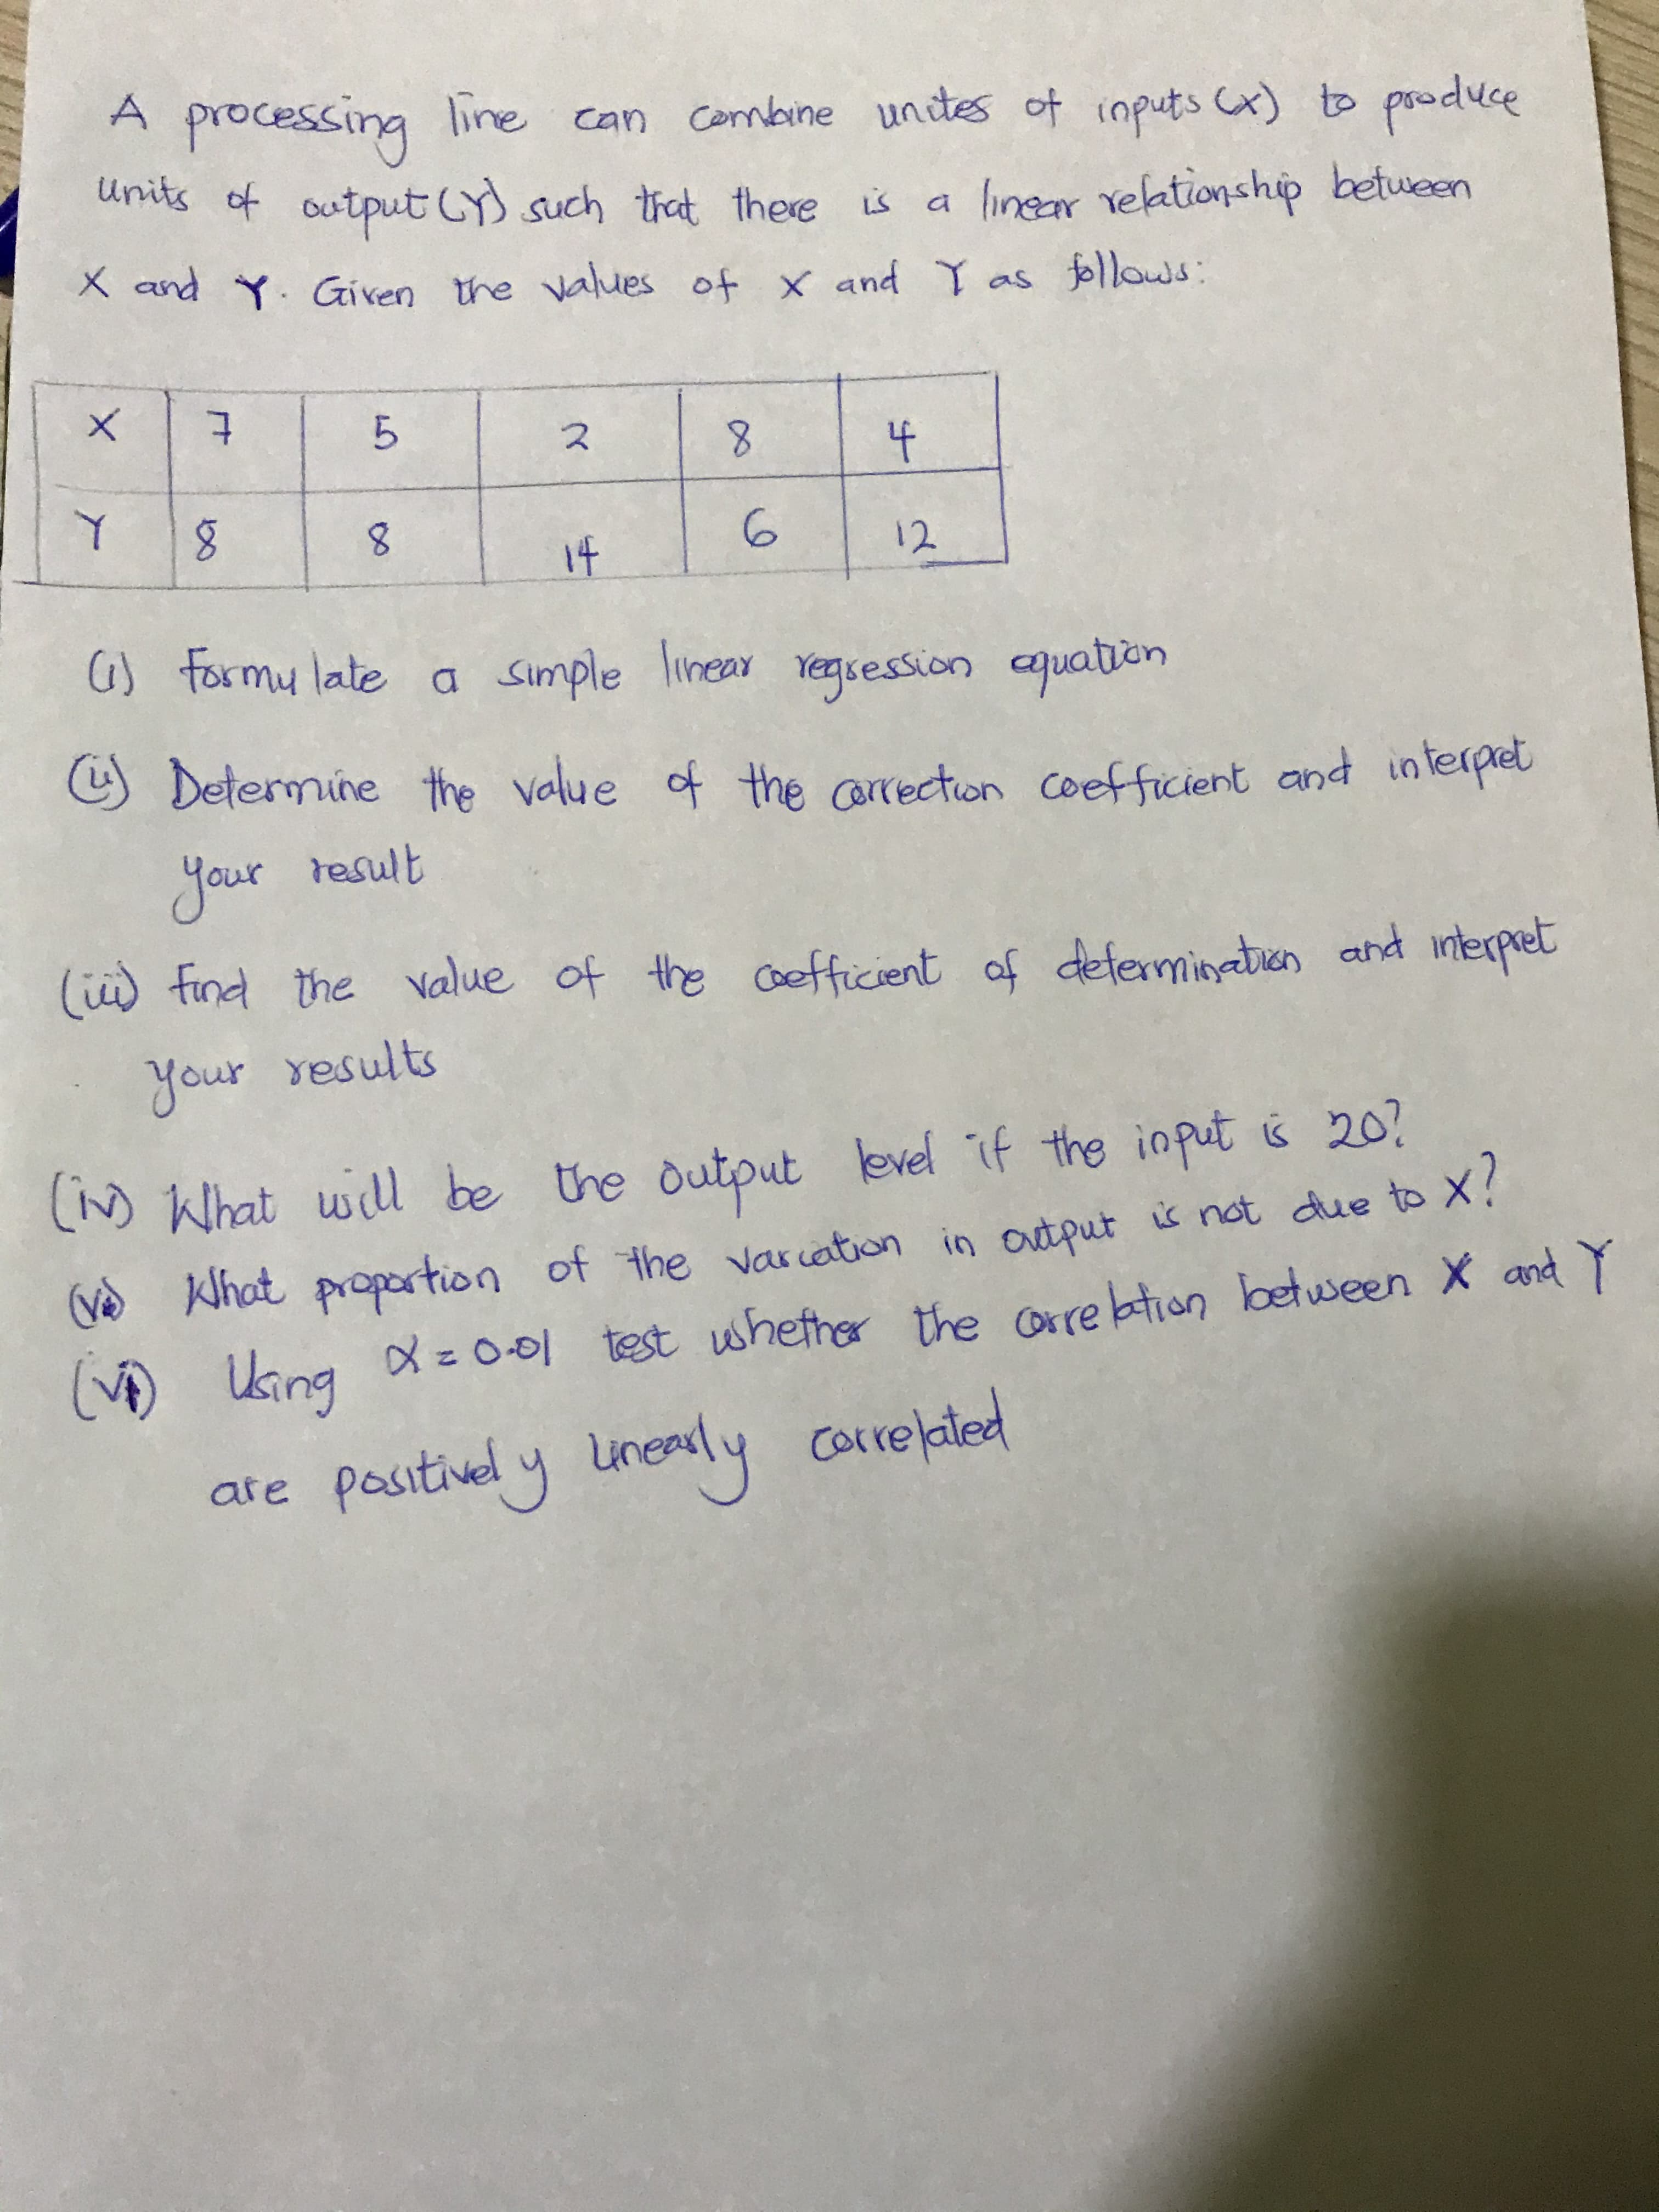 A processing line can combine unites of inputs (X) to produce
units of output (Y) such that there is a linear relationship between
X and Y. Given the values of X and Y as follows:
X 7 5 2 8 4
Y 8 8 14 6 12
(i) Formulate a simple linear regression equation
(ii) Determine the value of the correction coefficient and interpret
your result
(iii) Find the value of the coefficient of determination and interpret
your results
(iv) What will be the output level if the input is 20?
(v) What proportion of the variation in output is not due to X?
(vi) Using α = 0.01 test whether the correlation between X and Y
are positively linearly correlated